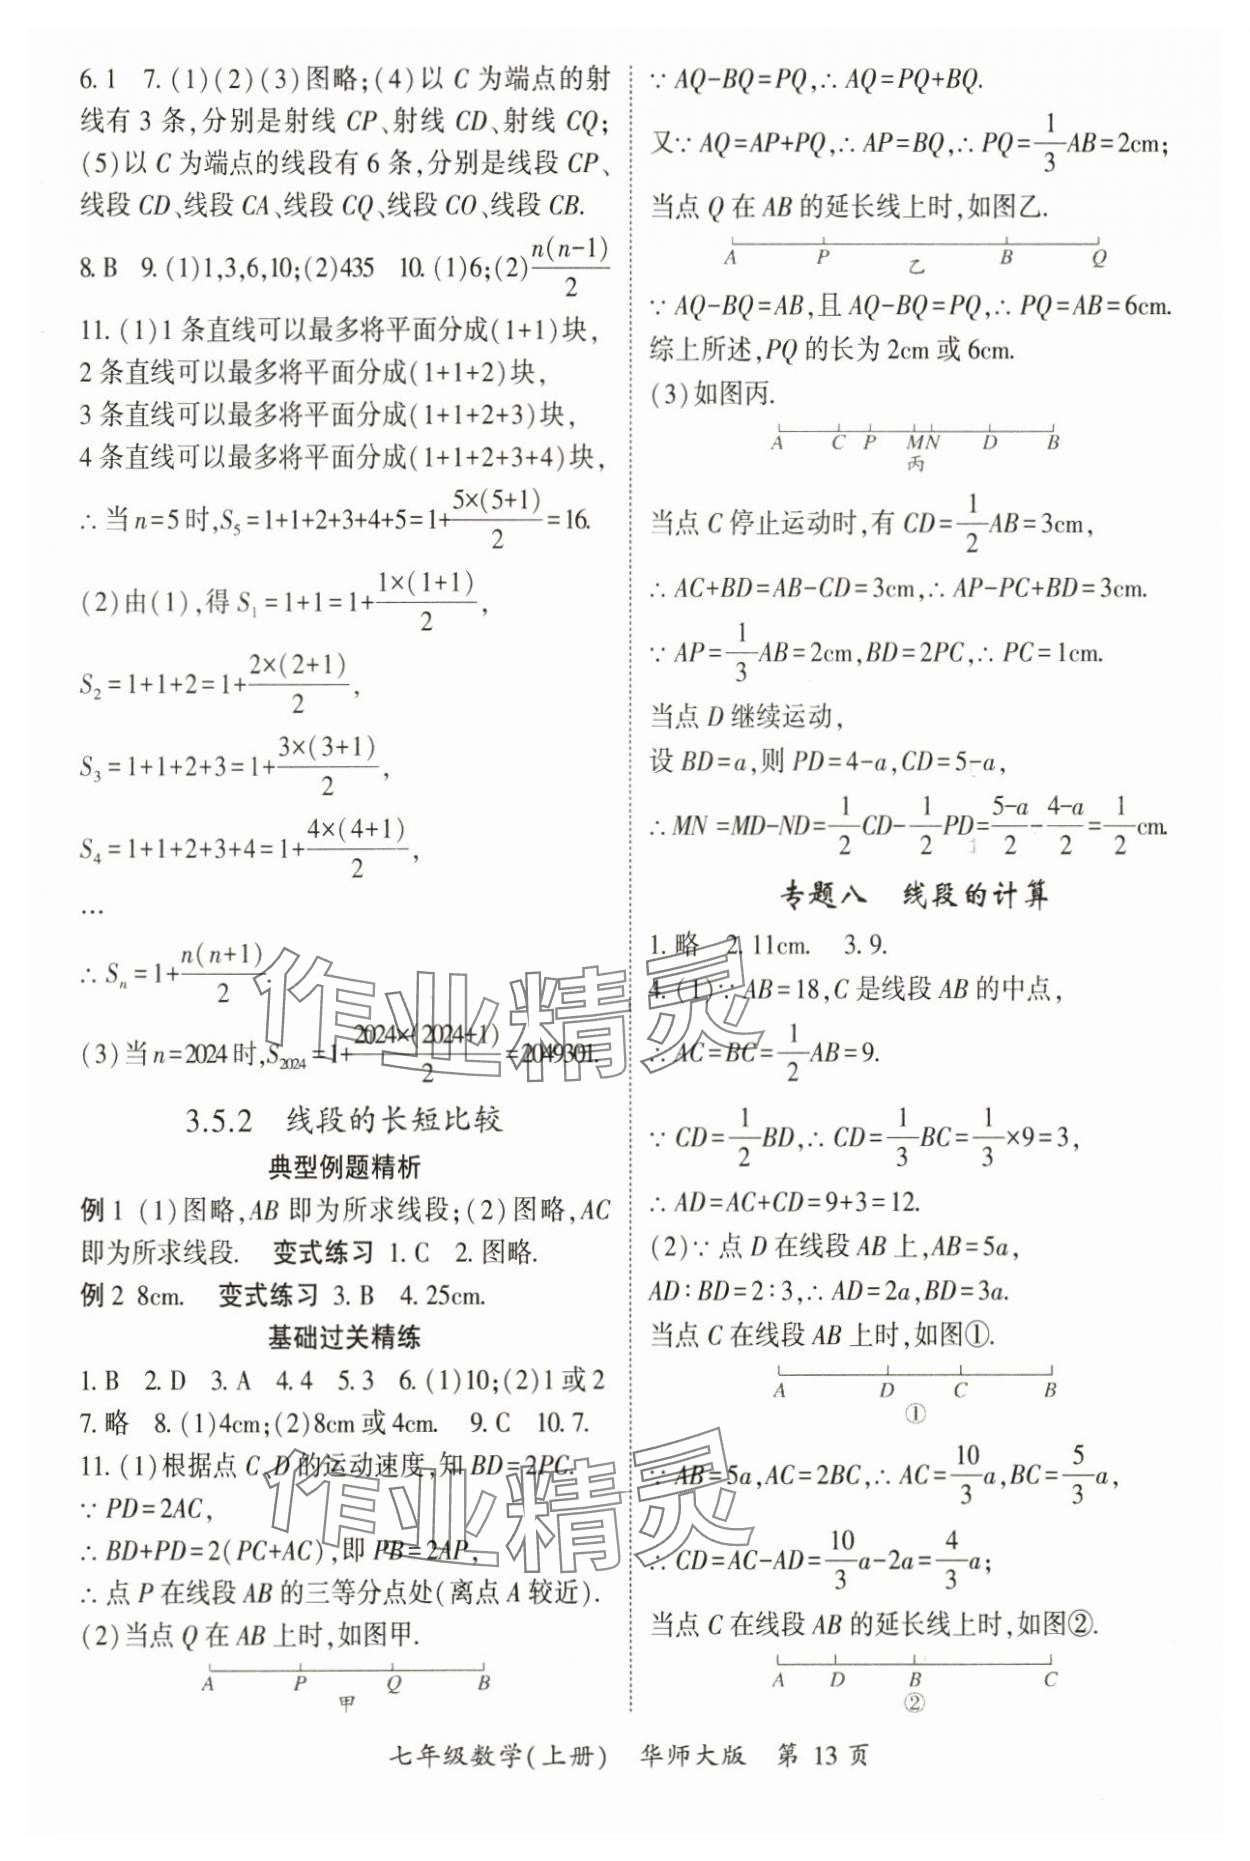 6.1 7.(1)(2)(3)图略;(4)以 C 为端点的射
线有 3 条,分别是射线 CP、射线 CD、射线 CQ;
(5)以 C 为端点的线段有 6 条,分别是线段 CP、
线段 CD、线段 CA、线段 CQ、线段 CO、线段 CB.
8.B 9.(1)1,3,6,10;(2)435 10.(1)6;(2)n(n-1)/2
11.(1)1 条直线可以最多将平面分成(1+1)块,
2 条直线可以最多将平面分成(1+1+2)块,
3 条直线可以最多将平面分成(1+1+2+3)块,
4 条直线可以最多将平面分成(1+1+2+3+4)块,
∴当 n=5 时,S₅=1+1+2+3+4+5=1+5×(5+1)/2=16.
(2)由(1),得 S₁=1+1=1+1×(1+1)/2,
S₂=1+1+2=1+2×(2+1)/2,
S₃=1+1+2+3=1+3×(3+1)/2,
S₄=1+1+2+3+4=1+4×(4+1)/2,
…
∴Sₙ=1+n(n+1)/2.
(3)当 n=2024 时,S₂₀₂₄=1+2024×(2024+1)/2=2049301.
3.5.2 线段的长短比较
典型例题精析
例 1 (1)图略,AB 即为所求线段;(2)图略,AC
即为所求线段. 变式练习 1.C 2.图略.
例 2 8cm. 变式练习 3.B 4.25cm.
基础过关精练
1.B 2.D 3.A 4.4 5.3 6.(1)10;(2)1 或 2
7.略 8.(1)4cm;(2)8cm 或 4cm. 9.C 10.7.
11.(1)根据点 C、D 的运动速度,知 BD=2PC.
∵PD=2AC,
∴BD+PD=2(PC+AC),即 PB=2AP,
∴点 P 在线段 AB 的三等分点处(离点 A 较近).
(2)当点 Q 在 AB 上时,如图甲.
A P Q B
甲
∵AQ-BQ=PQ,∴AQ=PQ+BQ.
又∵AQ=AP+PQ,∴AP=BQ,∴PQ=1/3AB=2cm;
当点 Q 在 AB 的延长线上时,如图乙.
A P B Q
乙
∵AQ-BQ=AB,且 AQ-BQ=PQ,∴PQ=AB=6cm.
综上所述,PQ 的长为 2cm 或 6cm.
(3)如图丙.
A C P M N D B
丙
当点 C 停止运动时,有 CD=1/2AB=3cm,
∴AC+BD=AB-CD=3cm,∴AP-PC+BD=3cm.
∵AP=1/3AB=2cm,BD=2PC,∴PC=1cm.
当点 D 继续运动,
设 BD=a,则 PD=4-a,CD=5-a,
∴MN=MD-ND=1/2CD-1/2PD=(5-a)/2-(4-a)/2=1/2cm.
专题八 线段的计算
1.略 2.11cm. 3.9.
4.(1)∵AB=18,C 是线段 AB 的中点,
∴AC=BC=1/2AB=9.
∵CD=1/2BD,∴CD=1/3BC=1/3×9=3,
∴AD=AC+CD=9+3=12.
(2)∵点 D 在线段 AB 上,AB=5a,
AD∶BD=2∶3,∴AD=2a,BD=3a.
当点 C 在线段 AB 上时,如图①.
A D C B
①
∵AB=5a,AC=2BC,∴AC=10/3a,BC=5/3a,
∴CD=AC-AD=10/3a-2a=4/3a;
当点 C 在线段 AB 的延长线上时,如图②.
A D B C
②
七年级数学(上册) 华师大版 第 13 页
作业精灵
作业精灵